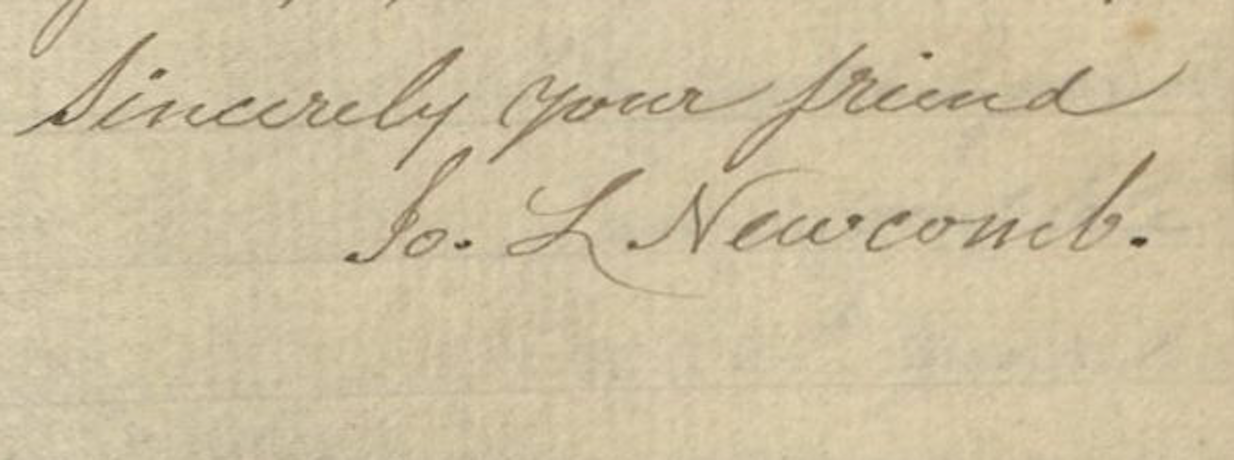 Sincerely your friend
Jo. L Newcomb.